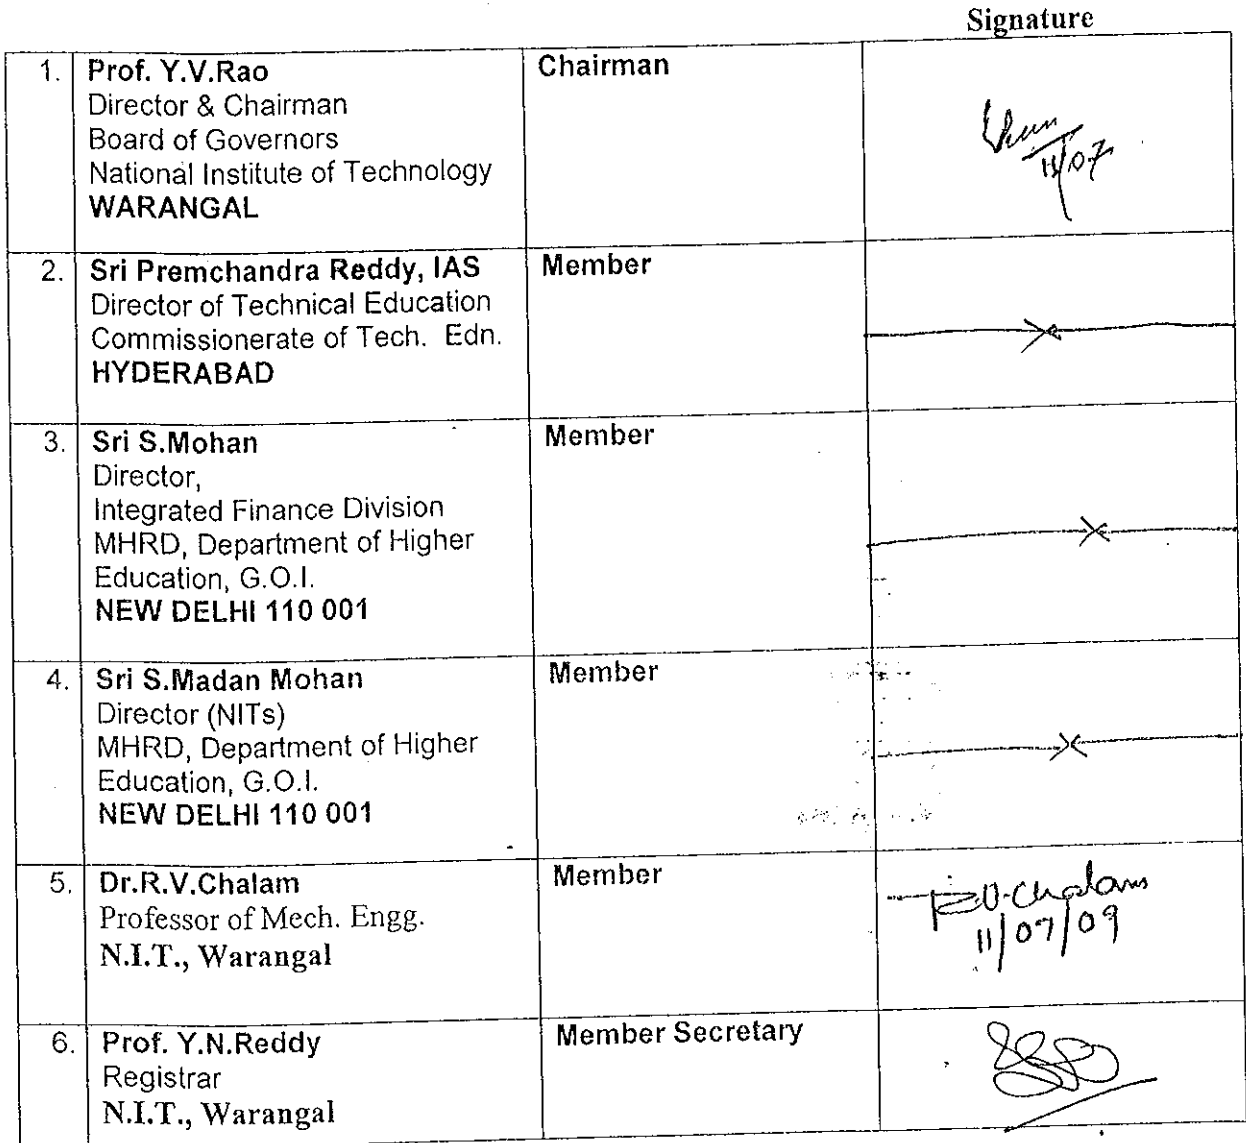 Signature
1. Prof. Y.V.Rao Chairman
Director & Chairman
Board of Governors
National Institute of Technology
WARANGAL
11/07
2. Sri Premchandra Reddy, IAS Member
Director of Technical Education
Commissionerate of Tech. Edn.
HYDERABAD
3. Sri S.Mohan Member
Director,
Integrated Finance Division
MHRD, Department of Higher
Education, G.O.I.
NEW DELHI 110 001
4. Sri S.Madan Mohan Member
Director (NITs)
MHRD, Department of Higher
Education, G.O.I.
NEW DELHI 110 001
5. Dr.R.V.Chalam Member
Professor of Mech. Engg.
N.I.T., Warangal
R.V.Chalam
11/07/09
6. Prof. Y.N.Reddy Member Secretary
Registrar
N.I.T., Warangal